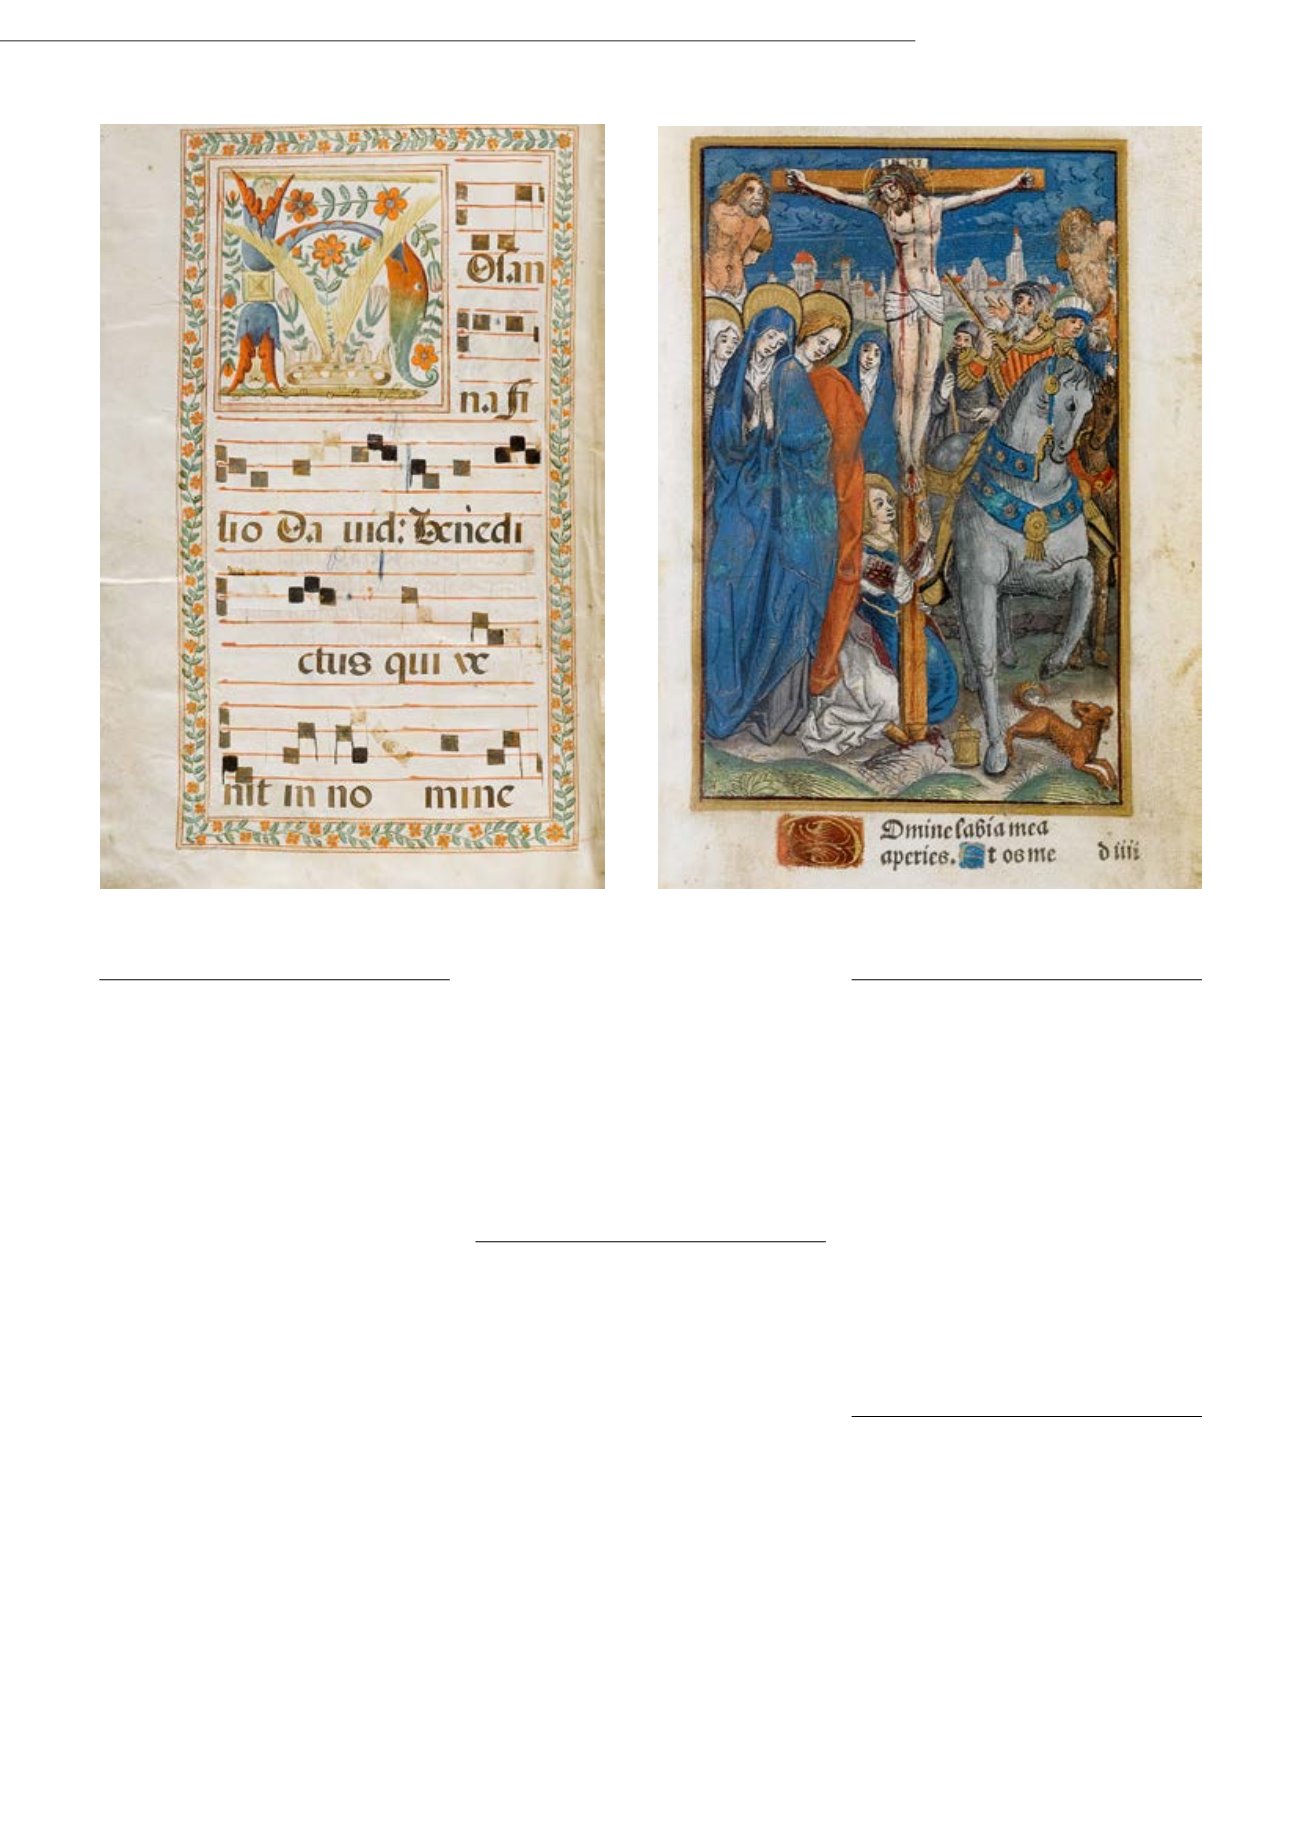 Osan
na fi
lio Da uid: Benedi
ctus qui ve
nit in no mine
INRI
Domine labia mea
aperies. Et os me
d iiii